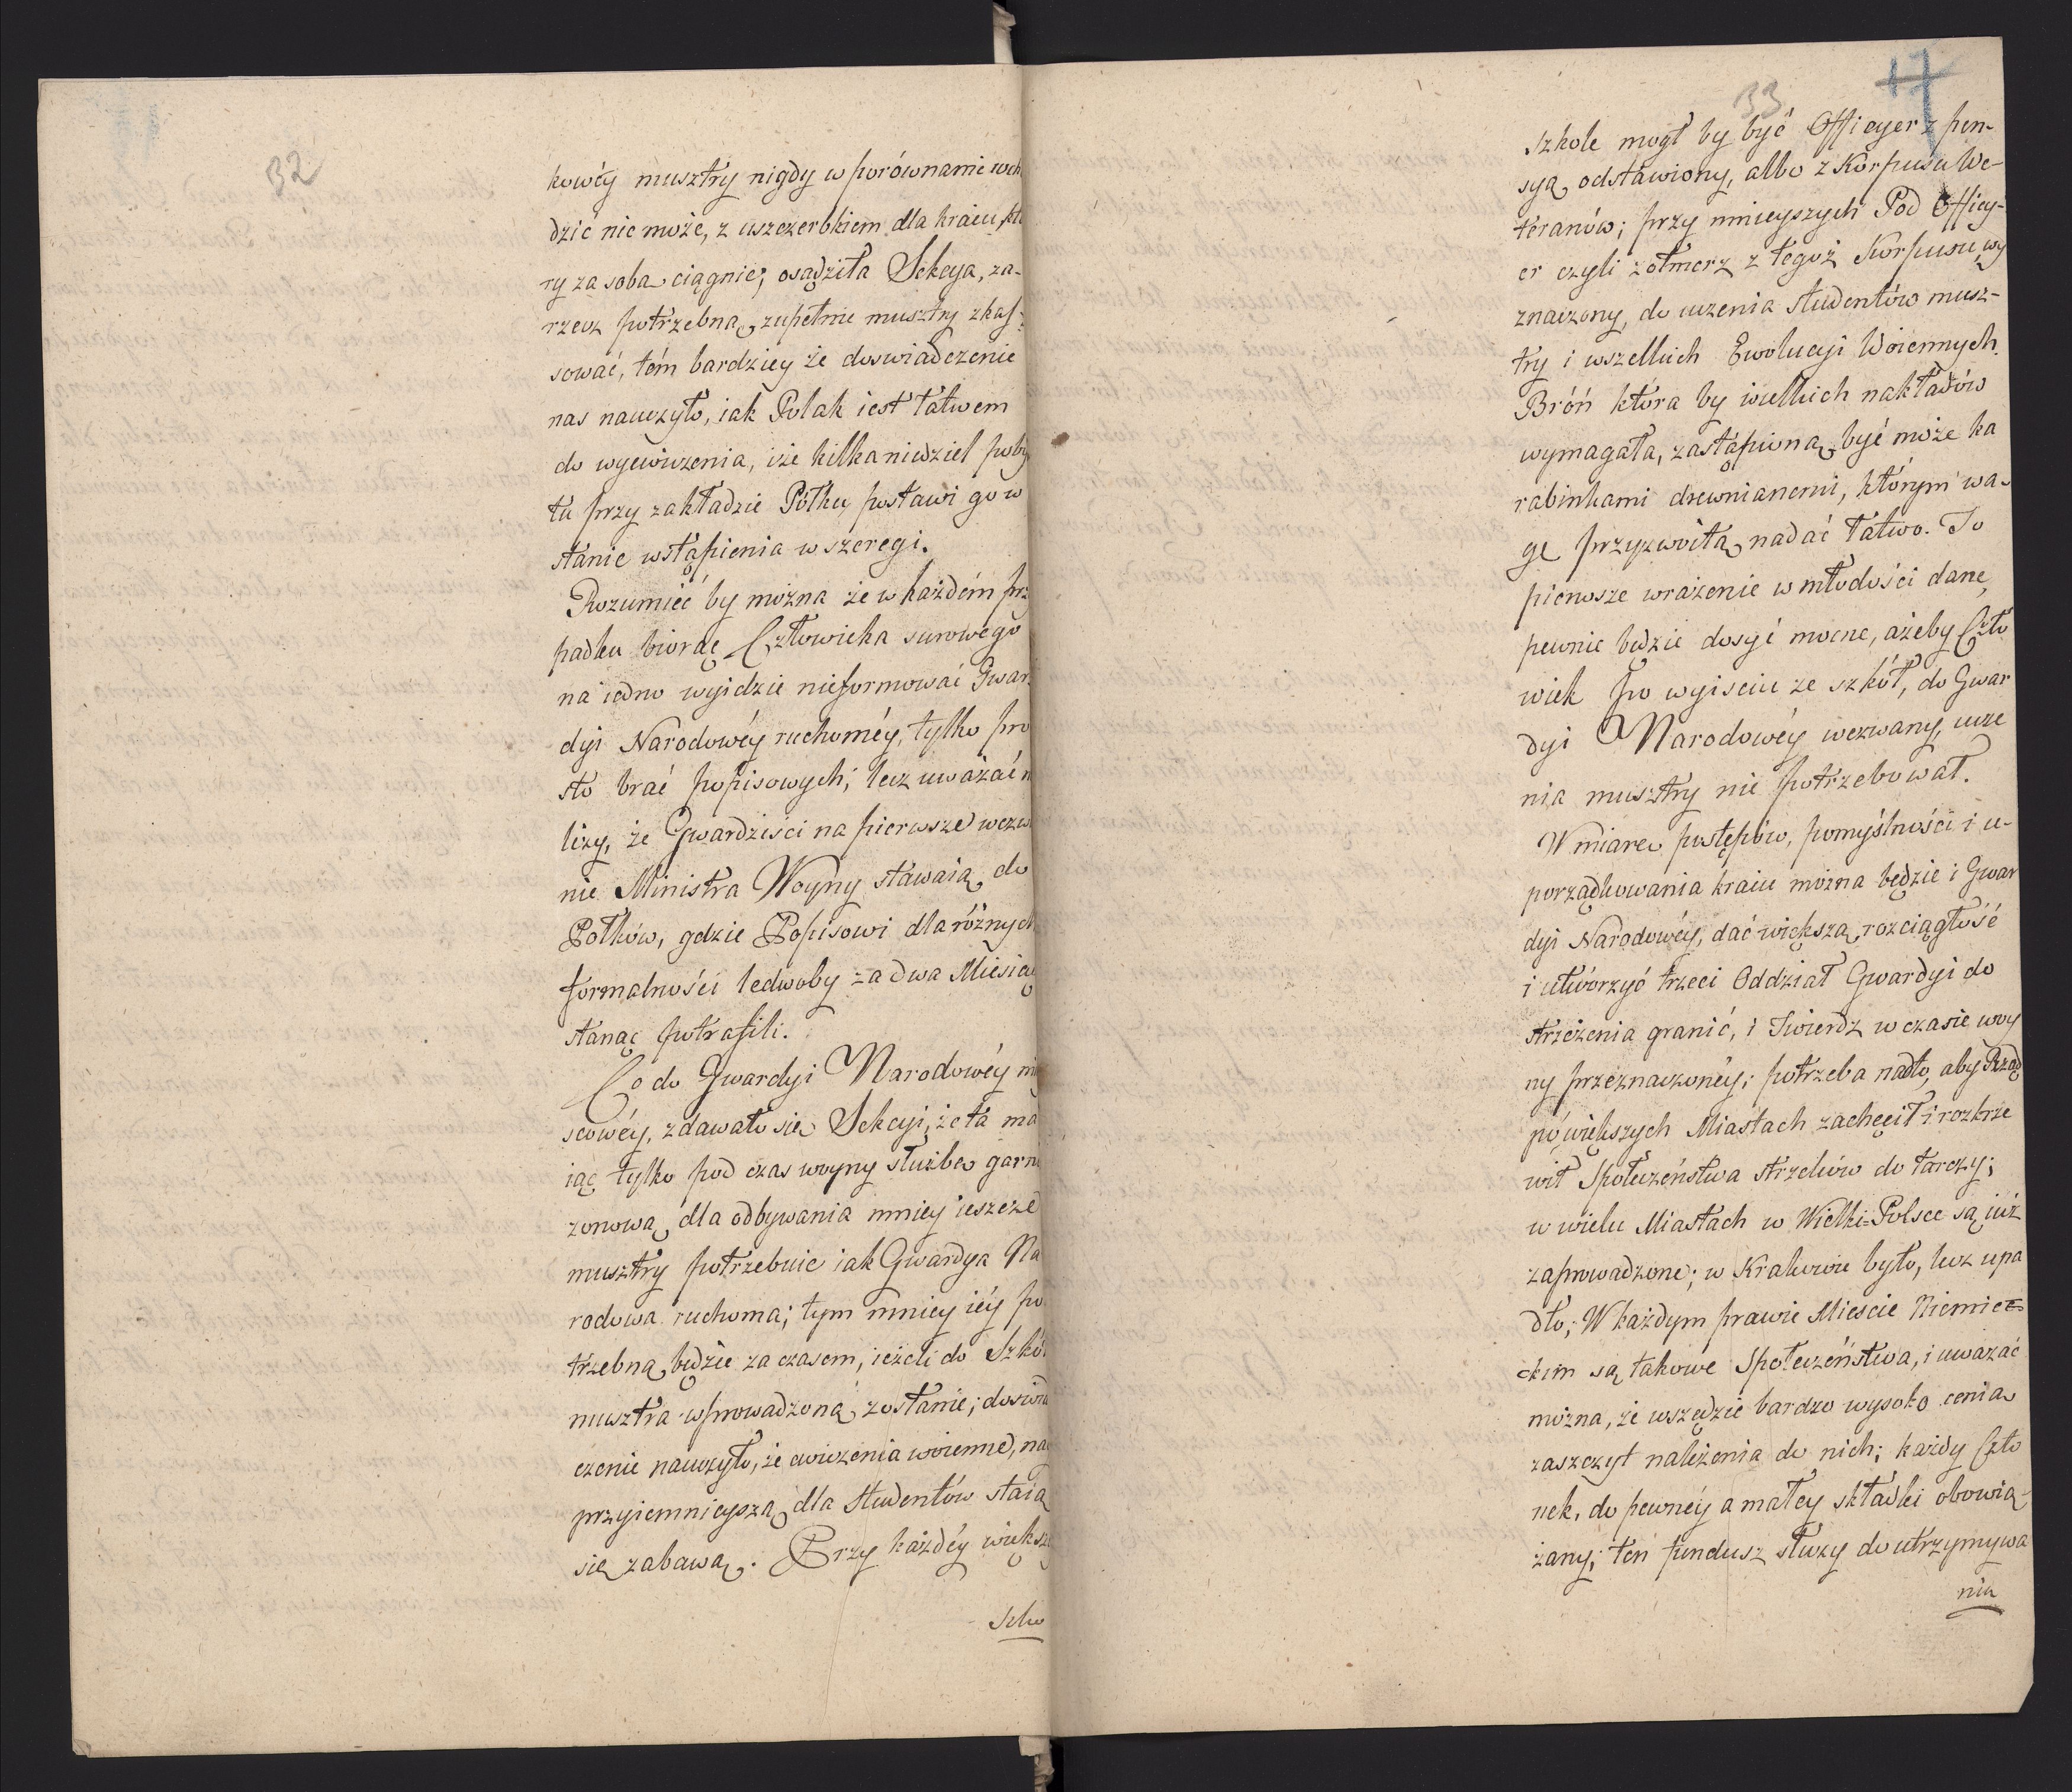 32
kowéy musztry nigdy w porównanie wcho
dzić nie może, z uszczerbkiem dla kraiu, któ
ry za sobą ciągnie; osądziła Sekcya, za-
rzecz potrzebną, zupełnie musztry skas-
sować, tém bardziey że doswiadczenie
nas nauczyło, iak Polak iest łatwem
do wyćwiczenia, iże kilka niedziel poby
tu przy zakładzie Półku, postawi go w
stanie wstąpienia w szeregi.
Rozumieć by można że w każdém przy
padku biorąc Człowieka surowego
na iedno wyidzie nieformować Gwar-
dyi Narodowéy ruchoméy, tylko pro
sto brać popisowych; lecz uważać na
leży, że Gwardziści na pierwsze wezwa
nie Ministra Woyny stawaią do
Półków, gdzie Popisowi dla różnych
formalności ledwoby za dwa Miesiące
stanąć potrafili.
Co do Gwardyi Narodowéy miey
scowéy, zdawało się Sekcyi, że ta ma
iąc tylko pod czas woyny służbę garni
zonową, dla odbywania mniéy ieszcze
musztry potrzebuie iak Gwardya Na
rodowa ruchoma; tym mniey iéy po
trzebną będzie za czasem, ieżeli do Szkół
musztra wprowadzoną zostanie; doswia
czenie nauczyło, że cwiczenia woienne, nay
przyiemnieyszą dla Studentów staią
się zabawą. Przy każdéy większey
Szko
33
17
szkole mogł by być Officyer z pen-
syą odstawiony, albo z Korpusu We-
teranów; przy mnieyszych Pod Officy-
er czyli żołnierz z tegoż Korpusu, wy
znaczony, do uczenia studentów musz-
try i wszelkich Ewolucyi Woiennych.
Broń która by wielkich nakładów
wymagała, zastąpioną być może ka
rabinkami drewnianemi, którym wa-
gę przyzwoitą nadać łatwo. To
pierwsze wrażenie w młodości dane,
pewnie będzie dosyć mocne, ażeby Czło
wiek po wyisciu ze szkół, do Gwar
dyi Narodowéy wezwany, ucze
nia musztry nie potrzebował.
W miarę postępów, pomyślności i u-
porządkowania kraiu można będzie i Gwar
dyi Narodowéy, dać większą rozciągłość
i utworzyć trzeci Oddział Gwardyi do
strzeżenia granic, i Twierdz w czasie woy
ny przeznaczonéy; potrzeba nadto, aby Rząd
po większych Miastach zachęcił i rozkrze
wił Społeczeństwa strzelców do tarczy;
w wielu Miastach w Wielki=Polsce są iuż
zaprowadzone; w Krakowie było, lecz upa
dło; W każdym prawie Miescie Niemiec=
ckim są takowe Społeczeństwa, i uważać
można, że wszędzie bardzo wysoko cenią
zaszczyt należenia do nich; każdy Czło
nek, do pewnéy a małey składki obowią-
zany; ten fundusz służy do utrzymywa
nia